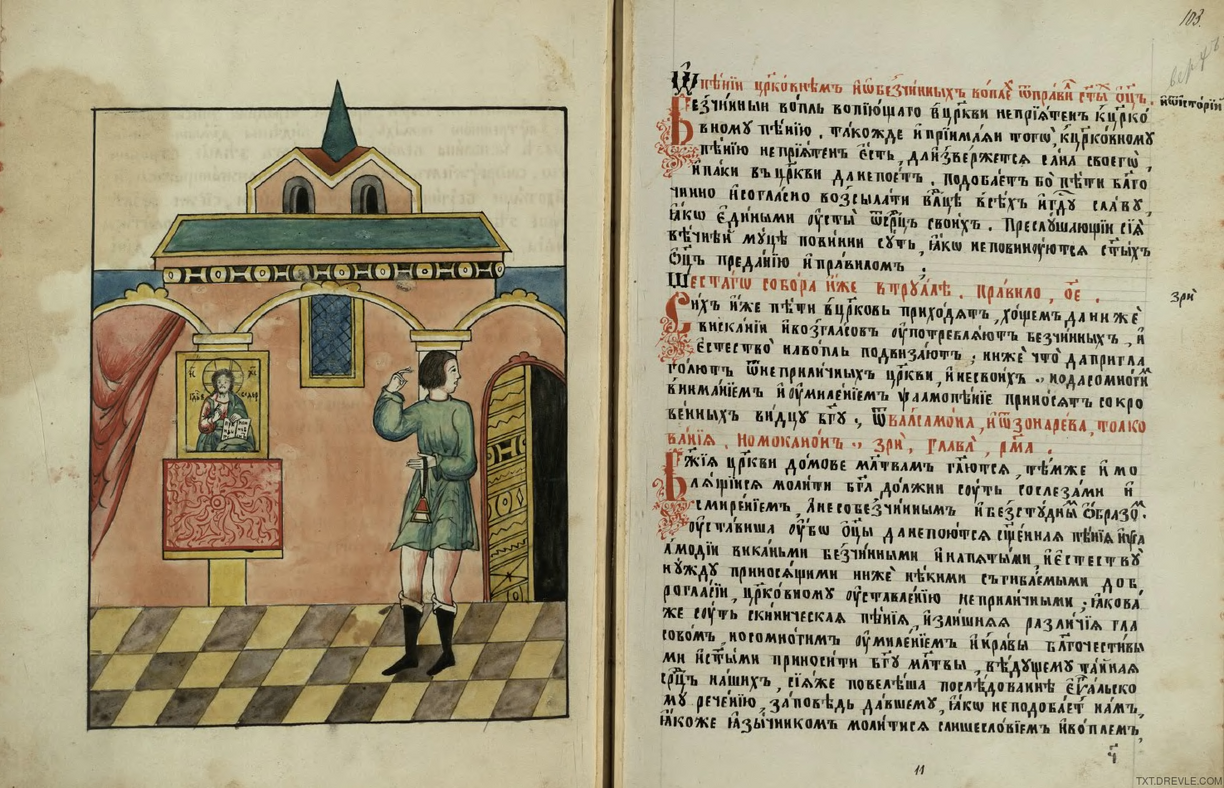 І҃С Х҃С
103
Ѡ҆ пѣ́нїи цр҃ко́внѣмъ и҆ѡ҆безчи́нныхъ во́плѣ ѿпра́вилъ ст҃ы́хъ ѻ҆ц҃ъ.
Безчи́нныи во́пль вопїю́щаго вцр҃кви непрїѧ́тенъ кцр҃ко
вному пѣ́нїю. та́кожде и҆ прїима́ѧи тогѡ̀, кцр҃ко́вному
пѣ́нїю непрїѧ́тенъ є҆́сть, да и҆зве́ржетсѧ са́на своегѡ̀
и҆ па́ки въ цр҃кви да непое́тъ. подоба́етъ бо пѣ́ти бл҃го
чи́нно и҆согла́сно возсыла́ти вл҃цѣ всѣ́хъ и҆гд҃у сла́ву,
ꙗ҆́кѡ є҆ди́ными ᲂу҆сты̀ ѿсрⷣцъ свои́хъ. Преслу́шающїи сїѧ̀
вѣ́чнѣй му́цѣ пови́нни су́ть, ꙗ҆́кѡ неповину́ютсѧ ст҃ы́хъ
ѻ҆ц҃ъ преда́нїю и҆пра́виломъ.
Шеста́гѡ собо́ра и҆́же втру́ллѣ. пра́вило, ѻ҃е.
Си́хъ и҆́же пѣ́ти вцр҃ковь прихо́дѧтъ, хо́щемъ да нижѐ
вискани́й и҆возгла́совъ ᲂу҆потреблѧ́ютъ безчи́нныхъ, и҆
є҆стество̀ на во́пль подвиза́ютъ; нижѐ что̀ да пригла
го́лютъ ѿнеприли́чныхъ цр҃кви, и҆несвои́хъ, но да сомно́гимъ
внима́нїемъ и҆ᲂу҆миле́нїемъ ѱалмопѣ́нїе прино́сѧтъ сокро
ве́нныхъ ви́дцу бг҃у, Ѿвалсамо́на, и҆ ѿзонаре́ва, толко
ва́нїѧ. номокано́нъ, зрѝ, глава̀, рм҃а.
Бж҃їѧ цр҃кви до́мове мл҃твамъ гл҃ютсѧ, тѣ́мже и҆ мо
лѧ́щїисѧ моли́ти бг҃а до́лжни су́ть сослеза́ми и҆
смире́нїемъ, а҆несобезчи́ннымъ и҆безсту́днымъ ѻ҆́бразомъ.
ᲂу҆ста́виша ᲂу҆́бѡ ѻ҆ц҃ы̀ да непою́тсѧ сщ҃е́ннаѧ пѣ́нїѧ и҆ѱа
лмо́дїи вика́ньми безчи́нными и҆напѧ́тыми, и҆є҆стеству̀
ну́жду приносѧ́щими нижѐ нѣ́кими съгиба́емыми доб
рогла́сїи, цр҃ко́вному ᲂу҆ставле́нїю неприли́чными; ꙗ҆кова́
же су́ть скини́ческаѧ пѣ́нїѧ, и҆зли́шнѧѧ разли́чїѧ гла
со́мъ, но сомно́гимъ ᲂу҆миле́нїемъ и҆нра́вы бл҃гочести́вы
ми и҆ст҃ы́ми приноси́ти бг҃у мл҃твы, вѣ́дущему та́йнаѧ
срⷣцъ на́шихъ, сїѧ́же повелѣ́ша послѣ́дованнѣ є҆ѵⷢ҇а́льско
му рече́нїю, за́повѣдь да́вшему, ꙗ҆́кѡ неподоба́етъ на́мъ,
ꙗ҆́коже ꙗ҆зы́чникомъ моли́тисѧ слишесло́вїемъ и҆во́племъ,
и҆ѿи҆сто́рїй
зрѝ
11
TXT.DREVLE.COM